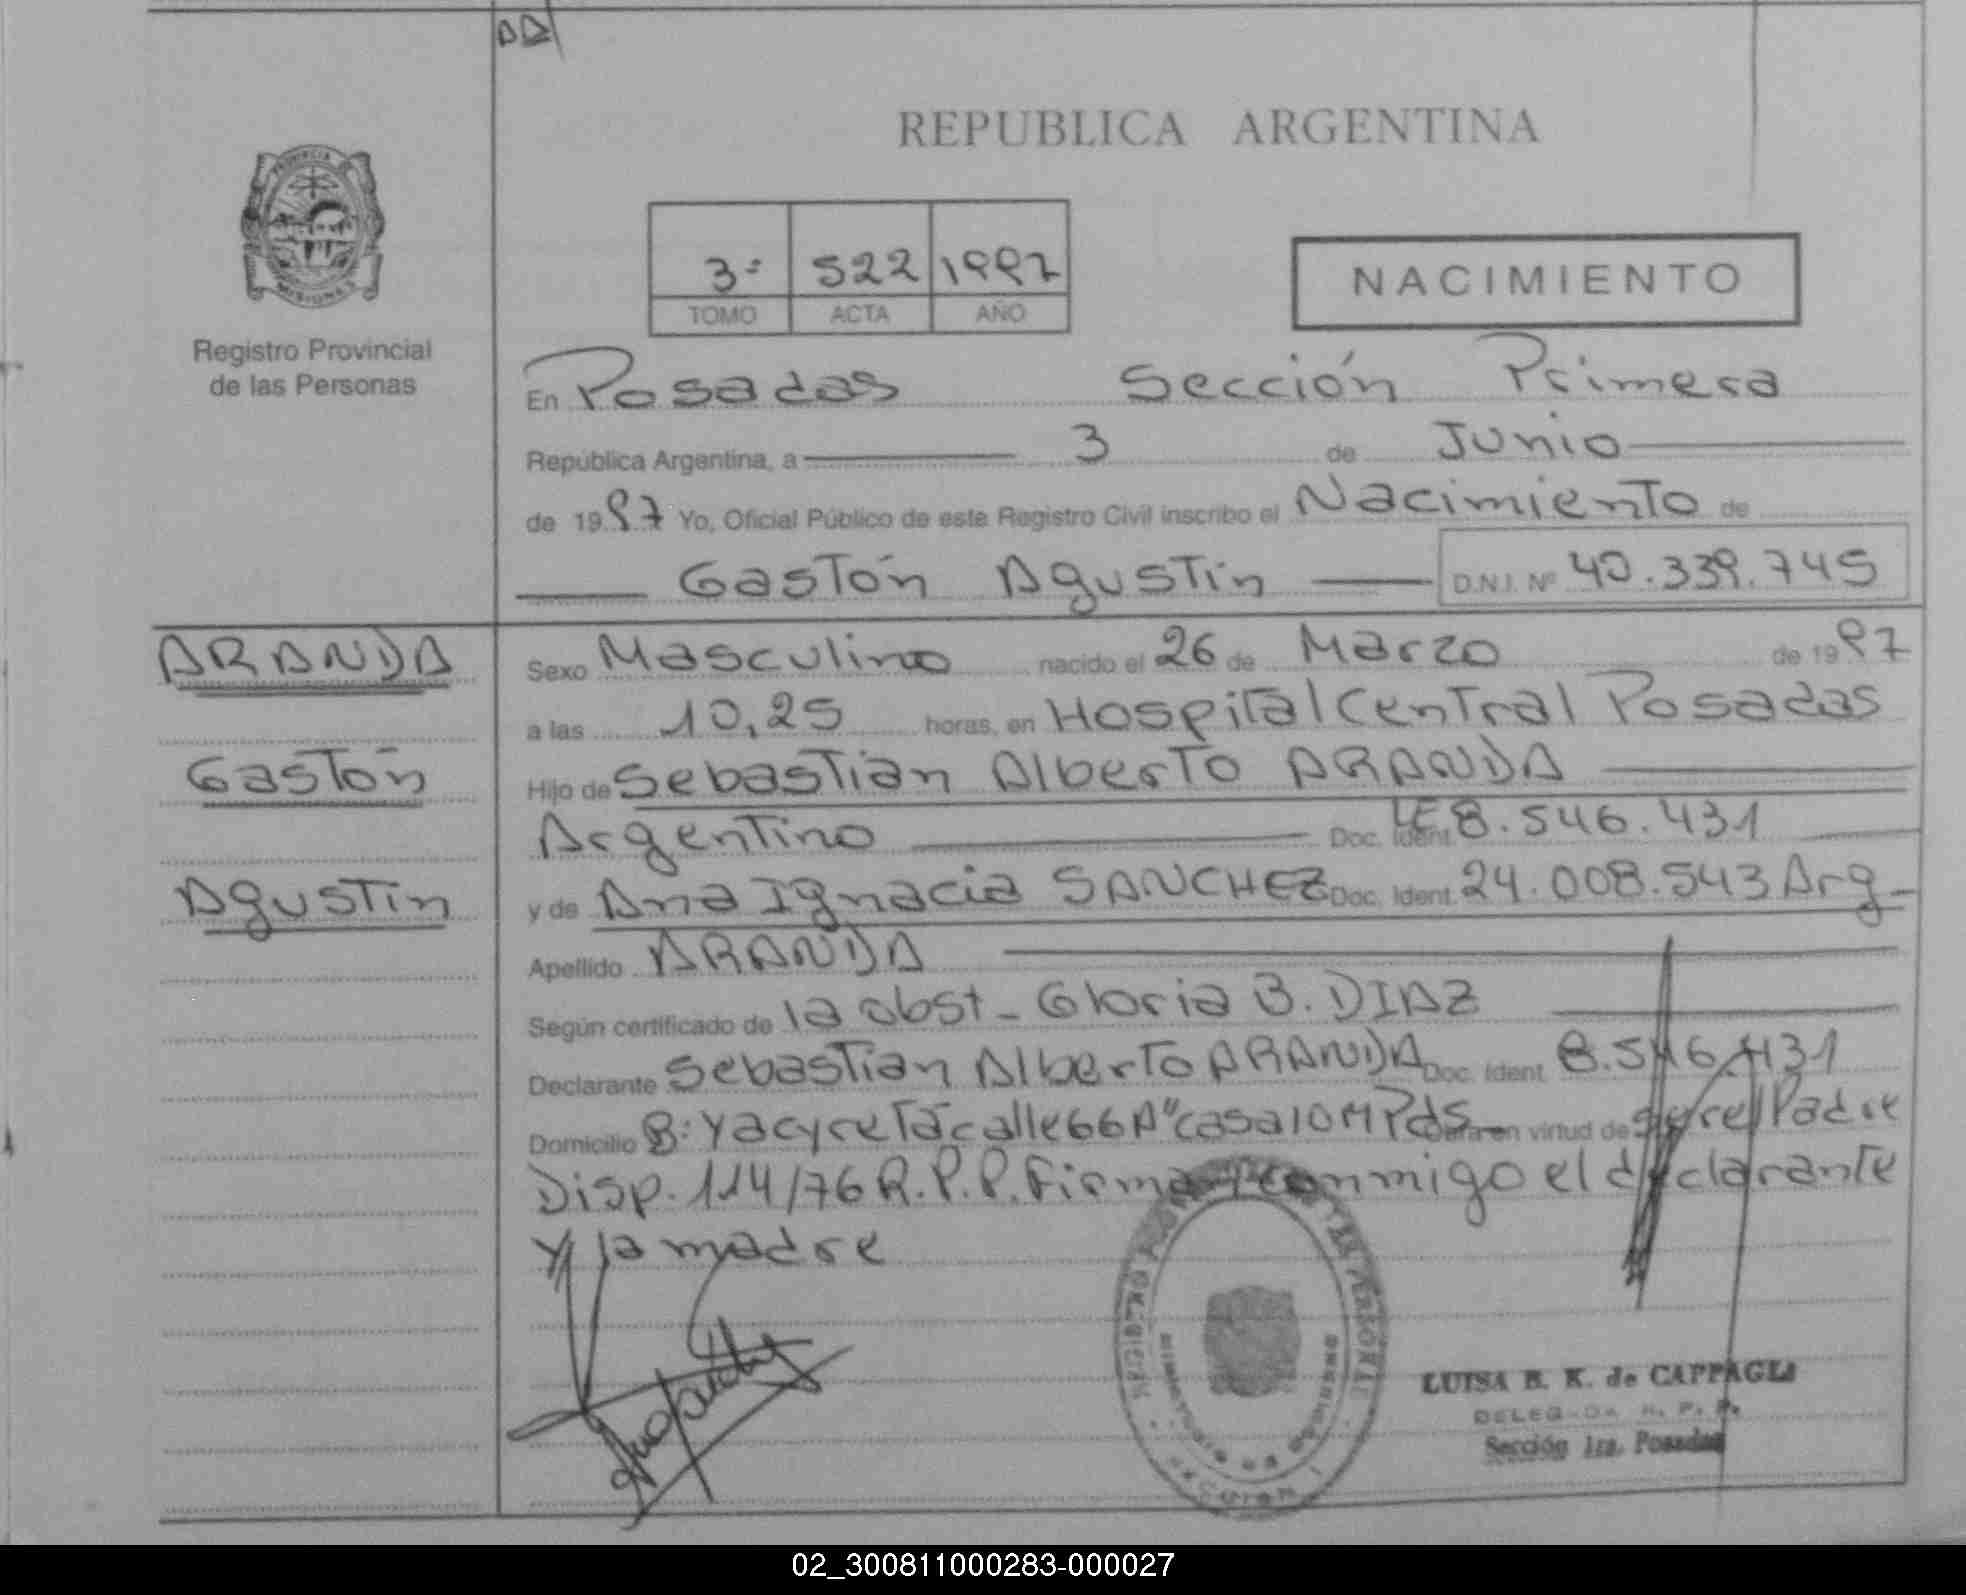 REPUBLICA ARGENTINA
PROVINCIA
MISIONES
Registro Provincial
de las Personas
3º 522 1997
TOMO ACTA AÑO
NACIMIENTO
En Posadas Sección Primera
República Argentina, a 3 de Junio
de 1997 Yo, Oficial Público de este Registro Civil inscribo el Nacimiento de
Gastón Agustín D.N.I. Nº 40.339.745
ARANDA
Gastón
Agustín
Sexo Masculino nacido el 26 de Marzo de 1997
a las 10,25 horas, en Hospital Central Posadas
Hijo de Sebastián Alberto ARANDA
Argentino Doc. Ident. LE 8.546.431
y de Ana Ignacia SANCHEZ Doc. Ident. 24.008.543 Arg.
Apellido ARANDA
Según certificado de la obst - Gloria B. DIAZ
Declarante Sebastián Alberto ARANDA Doc. Ident. 8.546.431
Domicilio B: Yacyretá calle 66 A" casa 10 M Pds en virtud de ser el Padre
Disp. 114/76 R.P.P. Firman conmigo el declarante
y la madre
LUISA B. K. de CAPPAGLI
DELEGADA R. P. P.
Sección 1ra. Posadas
02_300811000283-000027